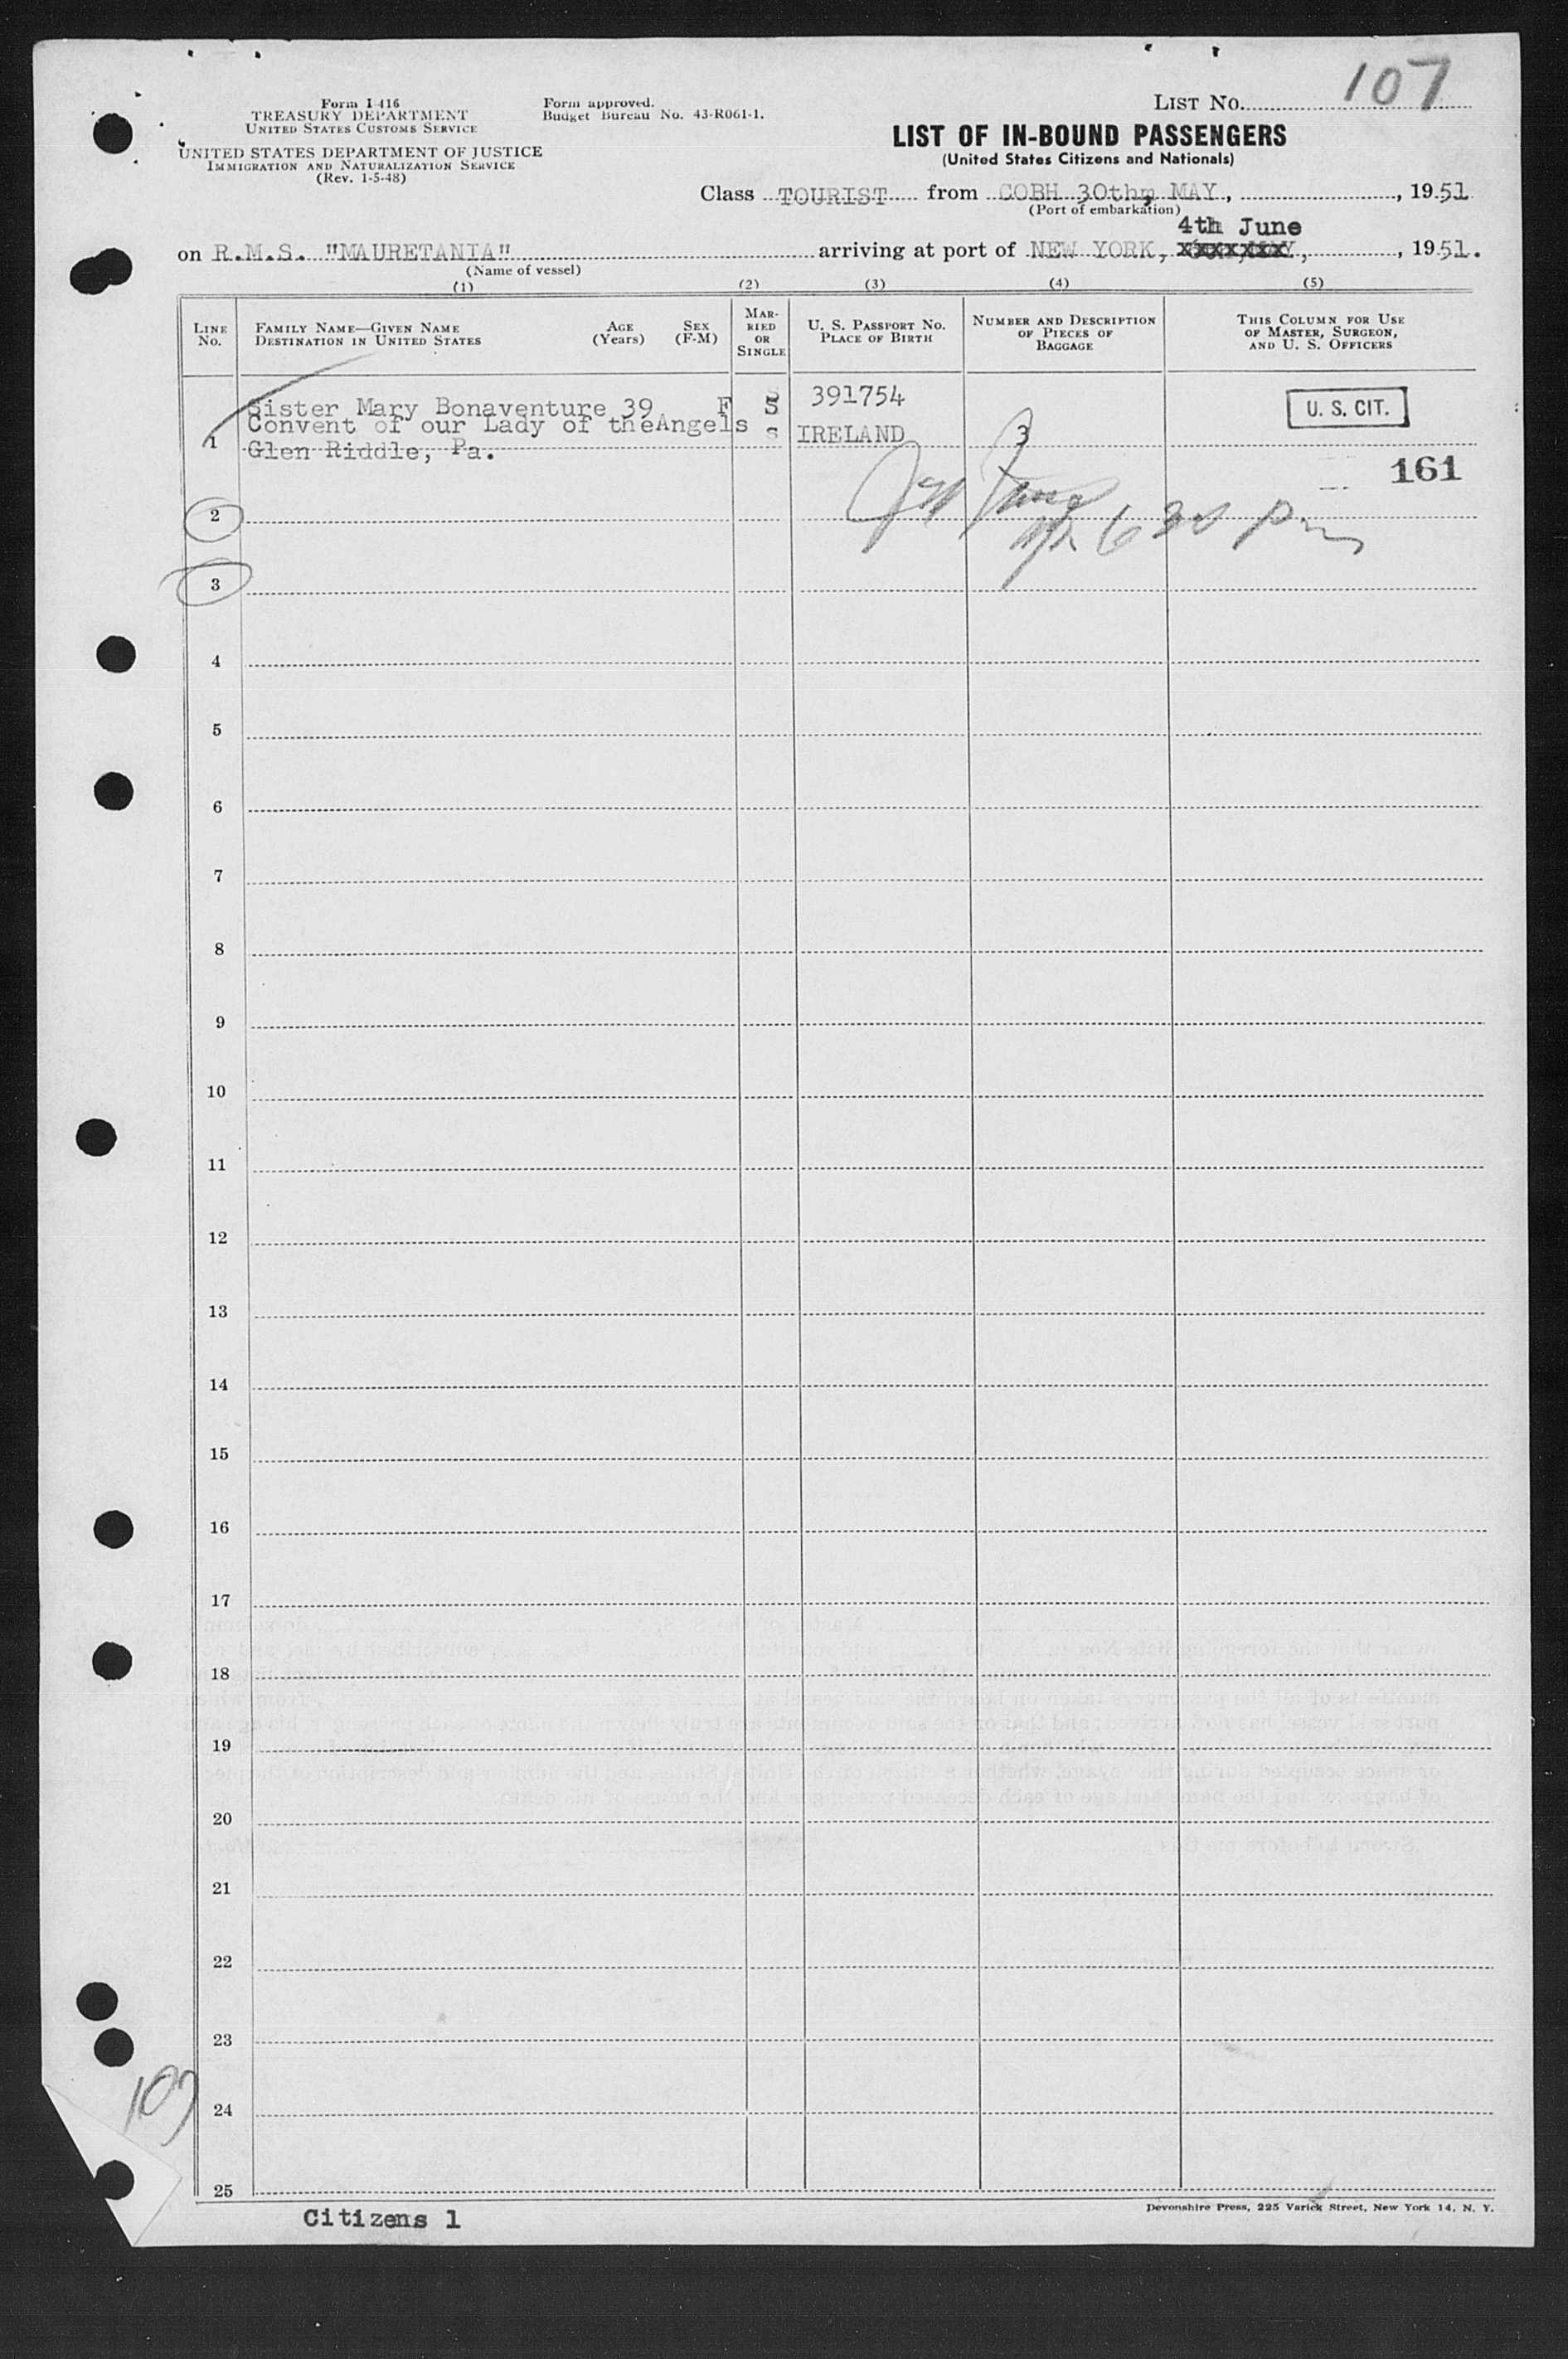 107
Form I-416
TREASURY DEPARTMENT
UNITED STATES CUSTOMS SERVICE
UNITED STATES DEPARTMENT OF JUSTICE
IMMIGRATION AND NATURALIZATION SERVICE
(Rev. 1-5-48)
Form approved.
Budget Bureau No. 43-R061-1.
LIST NO.
LIST OF IN-BOUND PASSENGERS
(United States Citizens and Nationals)
Class TOURIST from COBH 30th, MAY, , 1951
(Port of embarkation)
4th June
on R.M.S. "MAURETANIA" arriving at port of NEW YORK, , 1951.
(Name of vessel)
(1) (2) (3) (4) (5)
LINE NO.
FAMILY NAME—GIVEN NAME
DESTINATION IN UNITED STATES
AGE (Years)
SEX (F-M)
MARRIED OR SINGLE
U. S. PASSPORT NO.
PLACE OF BIRTH
NUMBER AND DESCRIPTION
OF PIECES OF
BAGGAGE
THIS COLUMN FOR USE
OF MASTER, SURGEON,
AND U. S. OFFICERS
Sister Mary Bonaventure 39 F S 391754 U. S. CIT.
Convent of our Lady of theAngels s IRELAND 3
1 Glen Riddle, Pa.
161
2
6 30 pm
3
4
5
6
7
8
9
10
11
12
13
14
15
16
17
18
19
20
21
22
23
24
25
107
Citizens 1
Devonshire Press, 225 Varick Street, New York 14, N. Y.